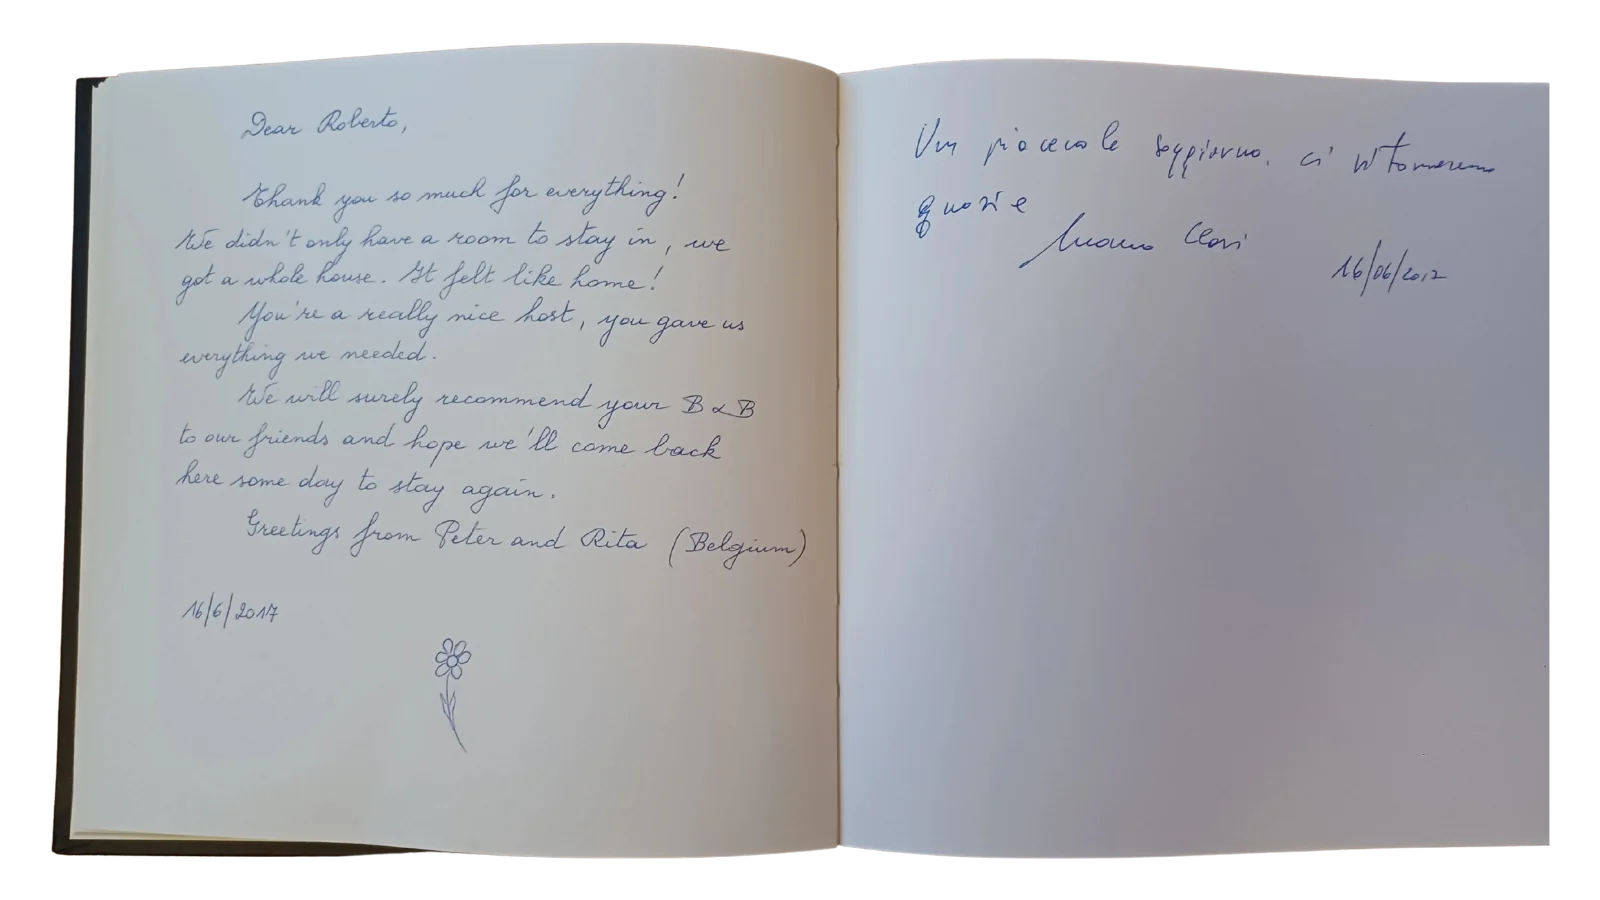 Dear Roberto,
Thank you so much for everything!
We didn't only have a room to stay in, we
got a whole house. It felt like home!
You're a really nice host, you gave us
everything we needed.
We will surely recommend your B & B
to our friends and hope we'll come back
here some day to stay again.
Greetings from Peter and Rita (Belgium)
16/6/2017
Un piacevole soggiorno, ci ritorneremo
grazie
16/06/2017